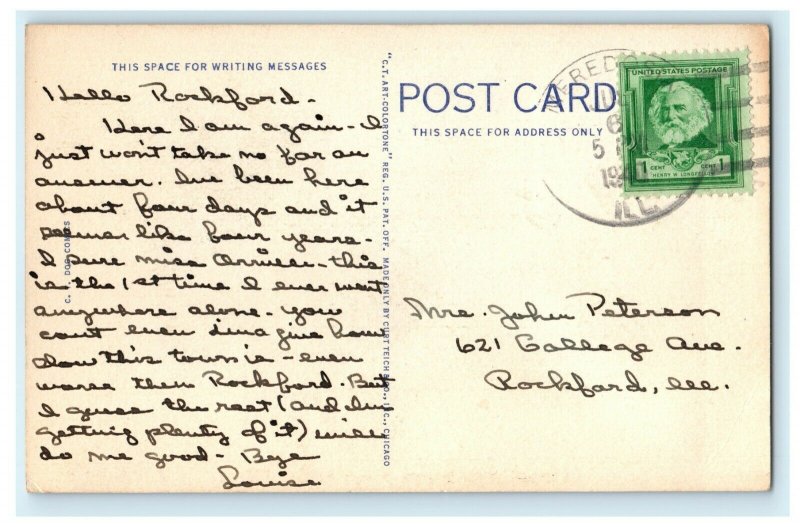 THIS SPACE FOR WRITING MESSAGES
Hello Rockford -
Here I am again - I
just won't take no for an
answer. I've been here
about four days and it
seems like four years -
I sure miss Orville - this
is the 1st time I ever went
anywhere alone. You
can't even imagine how
slow this town is - even
worse then Rockford. But
I guess the rest (and I'm
getting plenty of it) will
do me good - Bye
Louise
C. DOG COMICS
"C.T. ART-COLORTONE" REG. U.S. PAT. OFF. MADE ONLY BY CURT TEICH & CO., INC., CHICAGO
POST CARD
THIS SPACE FOR ADDRESS ONLY
ILL.
UNITED STATES POSTAGE
1 CENT CENT 1
HENRY W. LONGFELLOW
Mrs. John Peterson
621 College Ave.
Rockford, Ill.